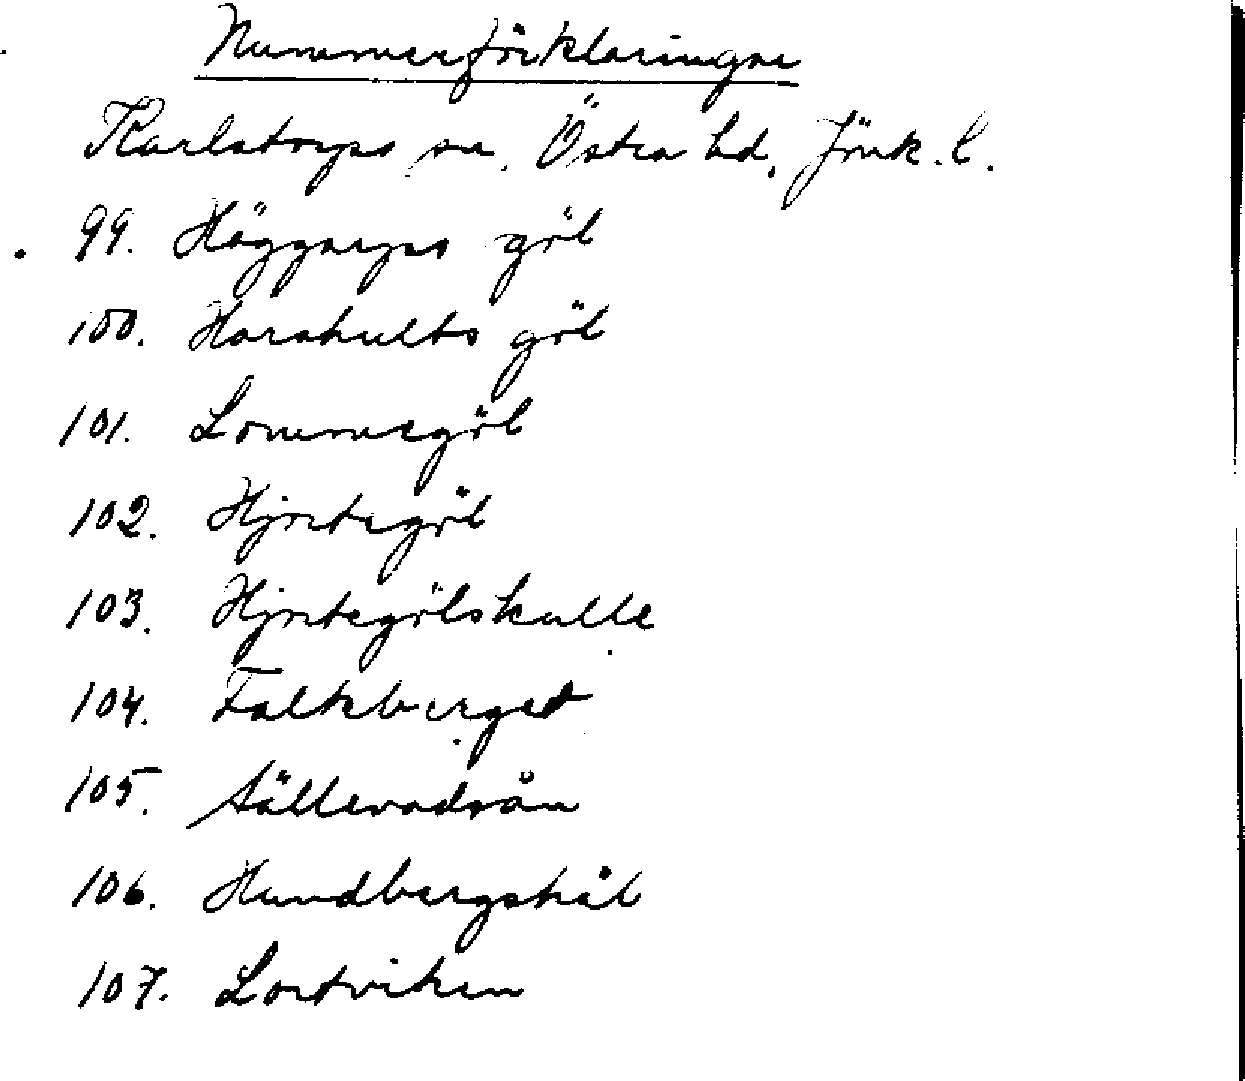 Nummerförklaringar
Karlstorps sn. Östra hd. Jönk. l.
99. Häggarps göl
100. Harahults göl
101. Lommegöl
102. Hjortegöl
103. Hjortegölskulle
104. Falkberget
105. Sällevadsån
106. Hundbergshål
107. Lortviken